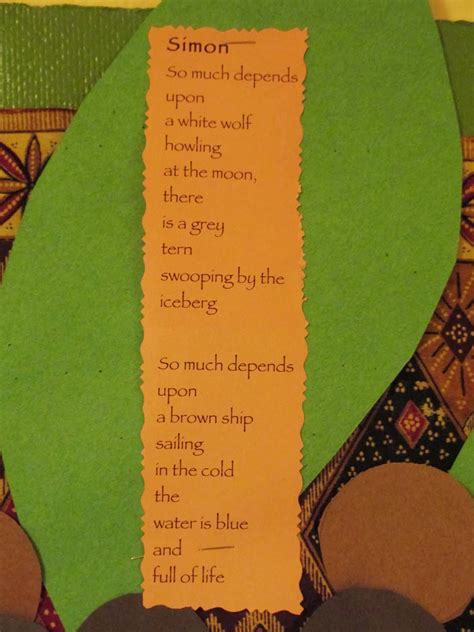 Simon
So much depends
upon
a white wolf
howling
at the moon,
there
is a grey
tern
swooping by the
iceberg
So much depends
upon
a brown ship
sailing
in the cold
the
water is blue
and
full of life